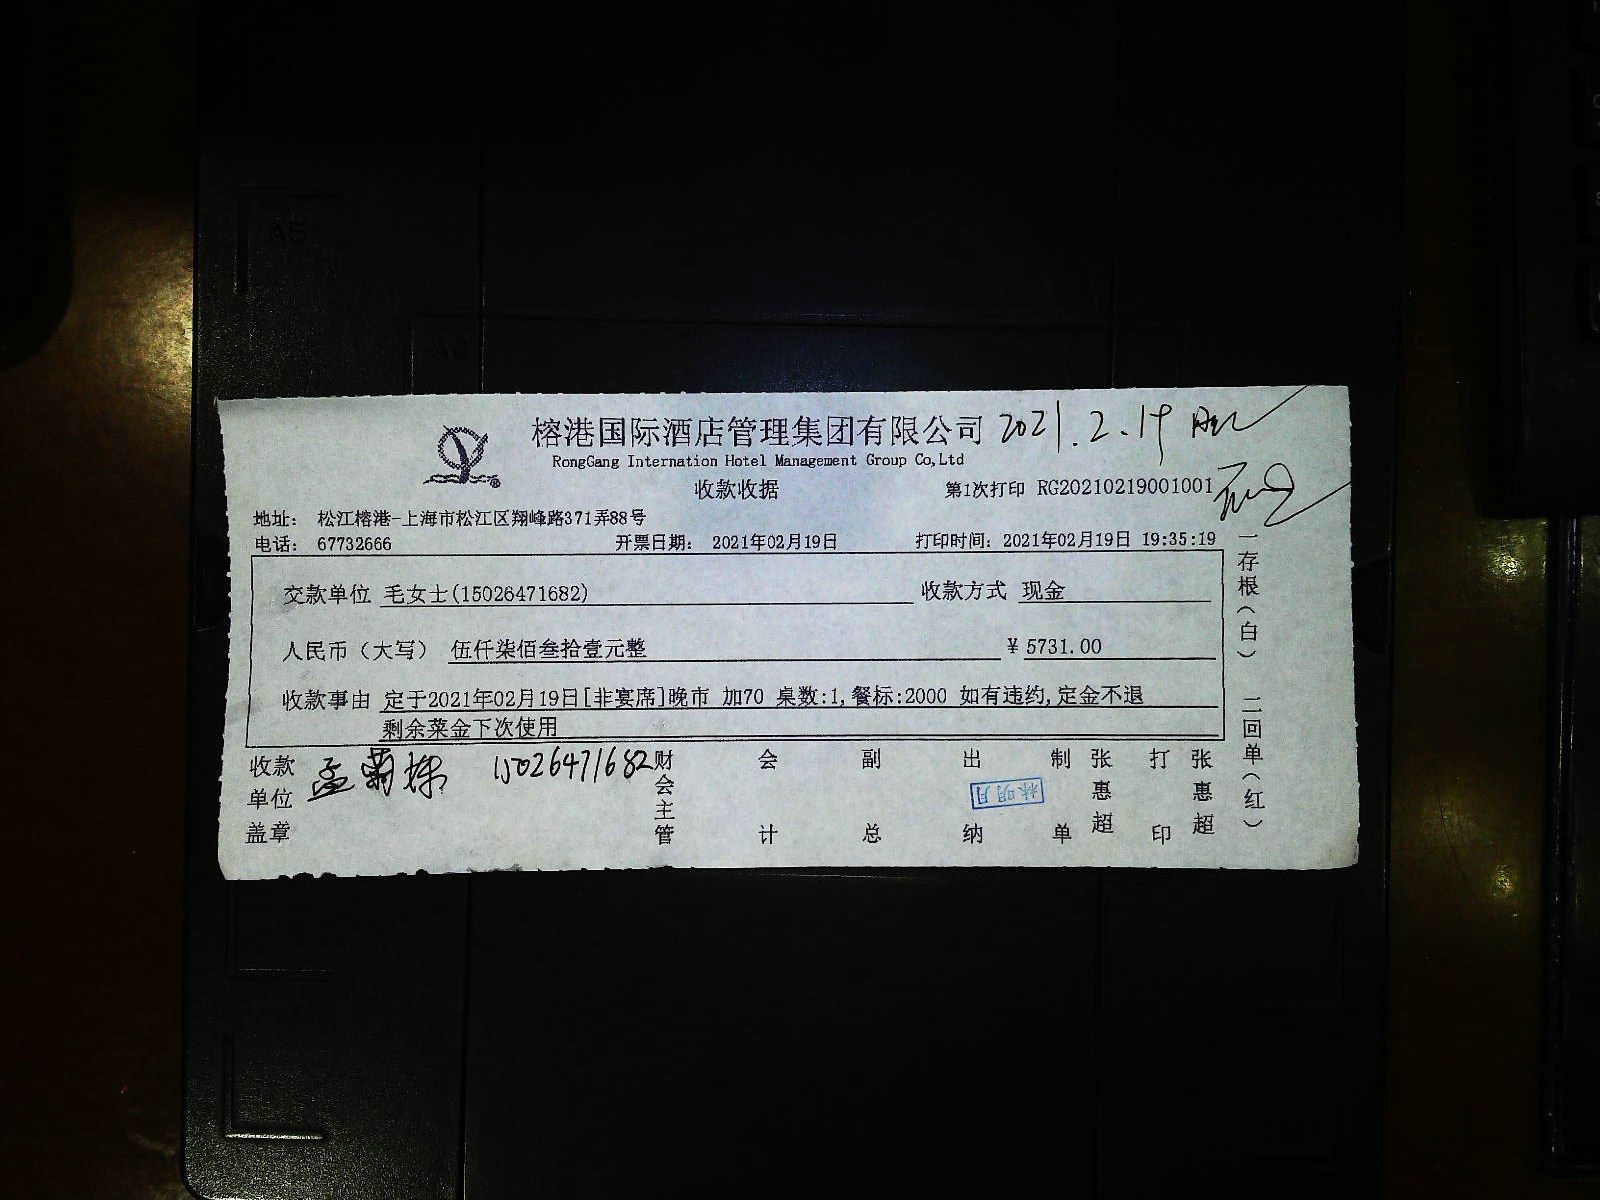 榕港国际酒店管理集团有限公司 2021.2.19
RongGang Internation Hotel Management Group Co,Ltd
收款收据 第1次打印 RG20210219001001
地址： 松江榕港-上海市松江区翔峰路371弄88号
电话： 67732666 开票日期： 2021年02月19日 打印时间：2021年02月19日 19:35:19
交款单位 毛女士(15026471682) 收款方式 现金
人民币（大写） 伍仟柒佰叁拾壹元整 ¥ 5731.00
收款事由 定于2021年02月19日[非宴席]晚市 加70 桌数:1,餐标:2000 如有违约,定金不退
剩余菜金下次使用
收款单位盖章 孟菊 15026471682 财会主管 会计 副总 出纳 林明月 制单 张惠超 打印 张惠超
一存根（白） 二回单（红）
A5